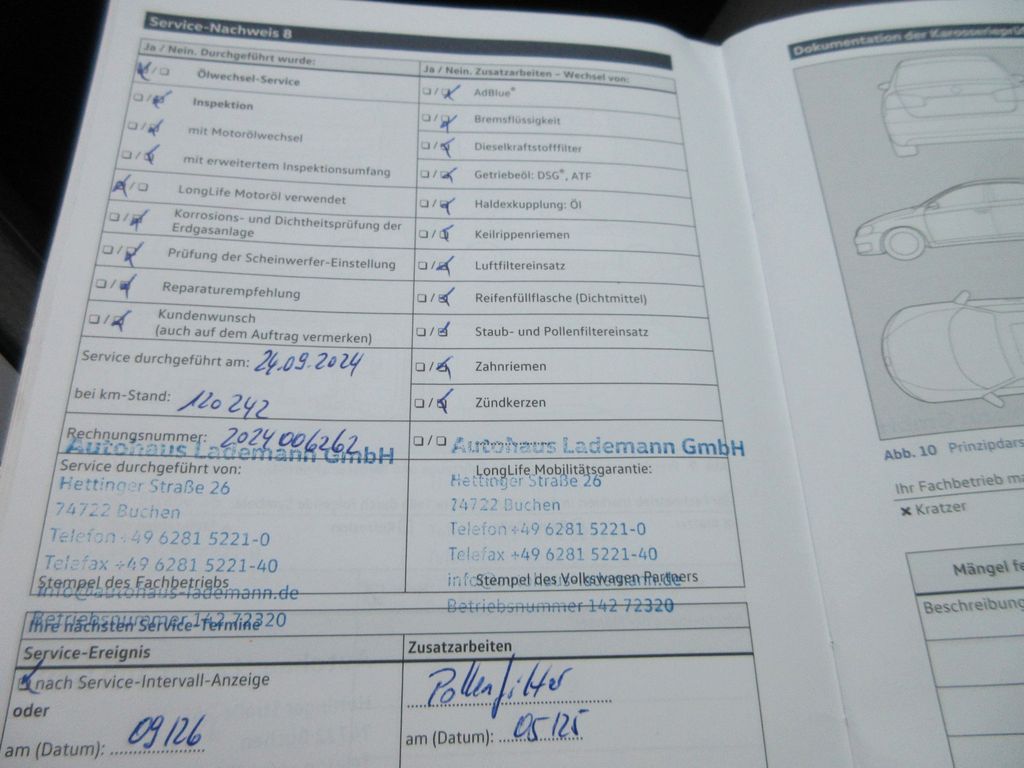 Service-Nachweis 8
Ja / Nein. Durchgeführt wurde:
Ölwechsel-Service
Inspektion
mit Motorölwechsel
mit erweitertem Inspektionsumfang
LongLife Motoröl verwendet
Korrosions- und Dichtheitsprüfung der
Erdgasanlage
Prüfung der Scheinwerfer-Einstellung
Reparaturempfehlung
Kundenwunsch
(auch auf dem Auftrag vermerken)
Service durchgeführt am: 24.09.2024
bei km-Stand: 120 242
Rechnungsnummer: 2024006262
Autohaus Lademann GmbH
Service durchgeführt von:
Hettinger Straße 26
74722 Buchen
Telefon +49 6281 5221-0
Telefax +49 6281 5221-40
Stempel des Fachbetriebs
info@autohaus-lademann.de
Betriebsnummer 142 72320
Ja / Nein. Zusatzarbeiten – Wechsel von:
AdBlue®
Bremsflüssigkeit
Dieselkraftstofffilter
Getriebeöl: DSG®, ATF
Haldexkupplung: Öl
Keilrippenriemen
Luftfiltereinsatz
Reifenfüllflasche (Dichtmittel)
Staub- und Pollenfiltereinsatz
Zahnriemen
Zündkerzen
Autohaus Lademann GmbH
LongLife Mobilitätsgarantie:
Hettinger Straße 26
74722 Buchen
Telefon +49 6281 5221-0
Telefax +49 6281 5221-40
Stempel des Volkswagen Partners
Betriebsnummer 142 72320
Ihre nächsten Service-Termine
Service-Ereignis
nach Service-Intervall-Anzeige
oder
am (Datum): 09/26
Zusatzarbeiten
Pollenfilter
am (Datum): 05/25
Dokumentation der
Abb. 10 Prinzipdars
Ihr Fachbetrieb ma
Kratzer
Mängel fe
Beschreibung